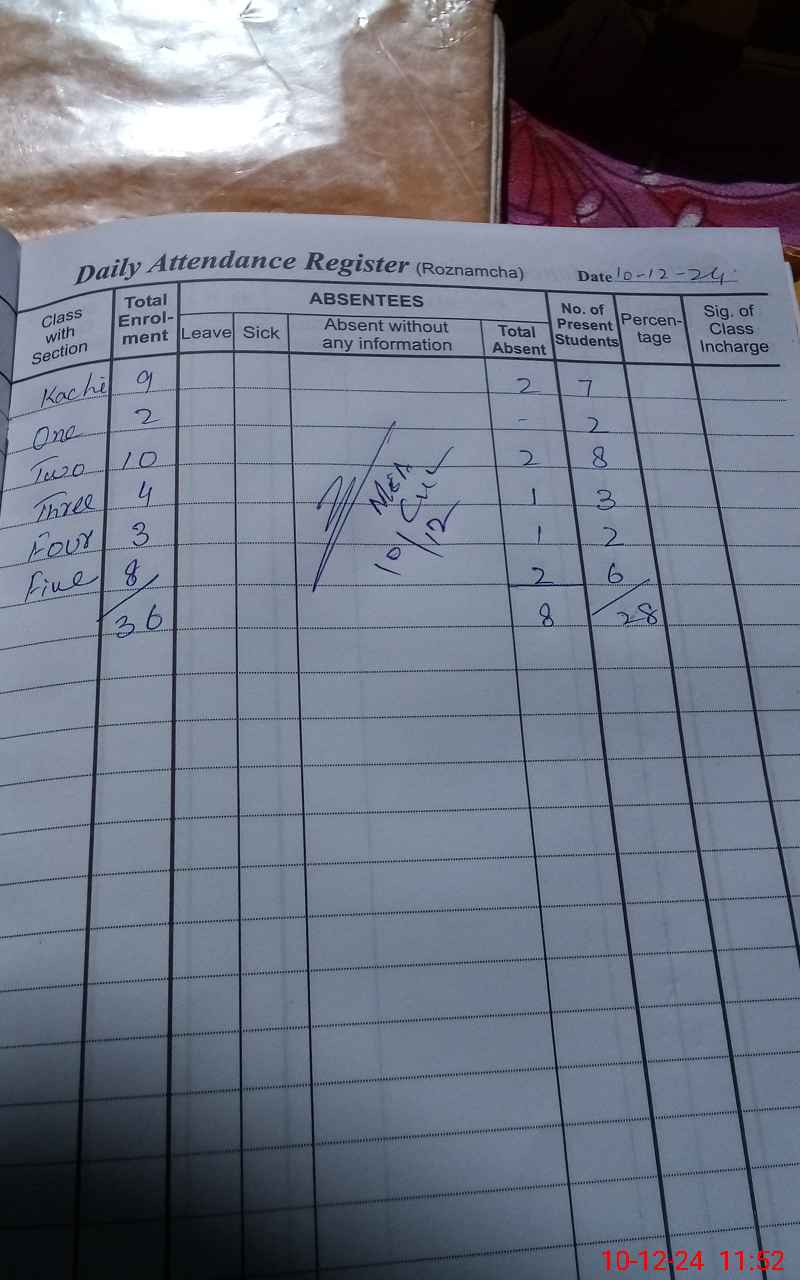 Daily Attendance Register (Roznamcha) Date 10-12-24
Class with Section Total Enrol-ment ABSENTEES No. of Present Students Percen-tage Sig. of Class Incharge
Leave Sick Absent without any information Total Absent
Kachi 9 2 7
One 2 - 2
Two 10 2 8
Three 4 1 3
Four 3 1 2
Five 8 2 6
36 8 28
10/12
10-12-24 11:52